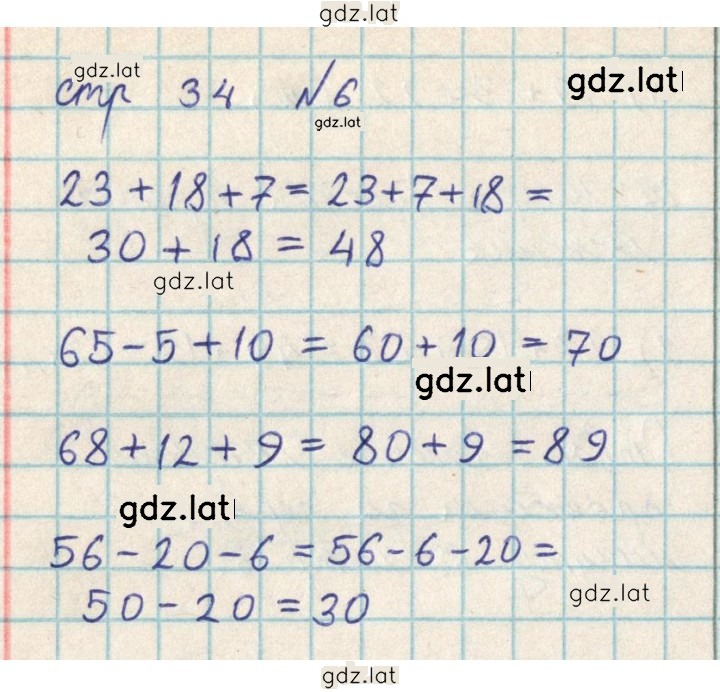 gdz.lat
gdz.lat
gdz.lat
стр 34 №6
gdz.lat
23+18+7=23+7+18=
30+18=48
gdz.lat
65-5+10=60+10=70
gdz.lat
68+12+9=80+9=89
gdz.lat
56-20-6=56-6-20=
50-20=30
gdz.lat
gdz.lat